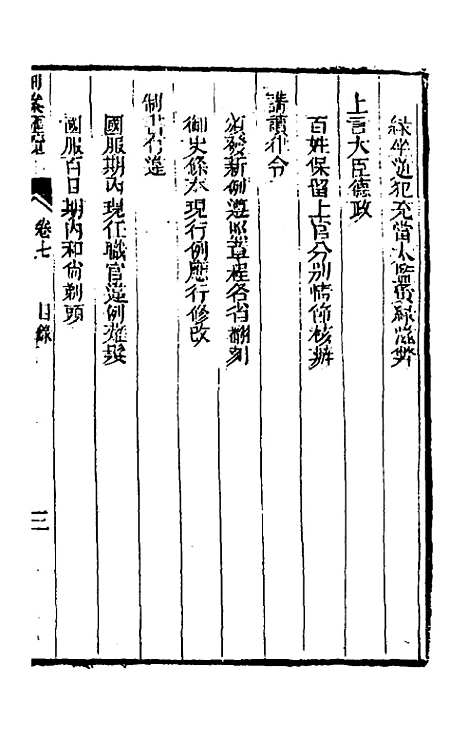 緣坐逆犯充當太監夤緣滋弊
上言大臣德政
百姓保留上官分別情節核辦
講讀律令
頒發新例遵照章程各省翻刻
御史條奏現行例應行修改
制書有違
國服期內現任職官違例薙髮
國服百日期內和尚剃頭
卷七 目錄 三